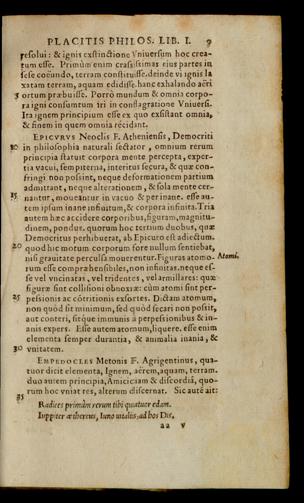 PLACITIS PHILOS. LIB. I. 9
resolui: & ignis exstinctione Vniuersum hoc crea-
tum esse. Primùm enim crassissimas eius partes in
sese coëundo, terram constituisse. deinde vi ignis la
xatam terram, aquam edidisse. hanc exhalando aëri
5 ortum præbuisse. Porrò mundum & omnia corpo-
ra igni consumtum iri in conflagratione Vniuersi.
Ita ignem principium esse ex quo exsistant omnia,
& finem in quem omnia récidant.
EPICVRVS Neoclis F. Atheniensis, Democriti
10 in philosophia naturali sectator, omnium rerum
principia statuit corpora mente percepta, exper-
tia vacui, sempiterna, interitus secura, & quæ con-
fringi non possint, neque deformationem partium
admittant, neque alterationem, & sola mente cer-
15 nantur, moueantur in vacuo & per inane. esse au-
tem ipsum inane infinitum, & corpora infinita. Tria
autem hæc accidere corporibus, figuram, magnitu-
dinem, pondus. quorum hoc tertium duobus, quæ
Democritus perhibuerat, ab Epicuro est adiectum.
20 quòd hic motum corporum fore nullum sentiebat,
nisi grauitate perculsa mouerentur. Figuras atomo- Atomi.
rum esse comprahensibiles, non infinitas. neque es-
se vel vncinatas, vel tridentes, vel armillares: quæ
figuræ sint collisioni obnoxiæ: cùm atomi sint per-
25 pessionis ac cótritionis exsortes. Dictam atomum,
non quòd sit minimum, sed quòd secari non possit,
aut conteri, sitque immunis à perpessionibus & in-
anis expers. Esse autem atomum, liquere. esse enim
elementa semper durantia, & animalia inania, &
30 vnitatem.
EMPEDOCLES Metonis F. Agrigentinus, qua-
tuor dicit elementa, Ignem, aërem, aquam, terram.
duo autem principia, Amicitiam & discordiã, quo-
rum hoc vniat res, alterum discernat. Sic autē ait:
35 Radices primùm rerum tibi quatuor edam.
Iuppiter æthereus, Iuno vitalis, ad hos Dis,
aa v